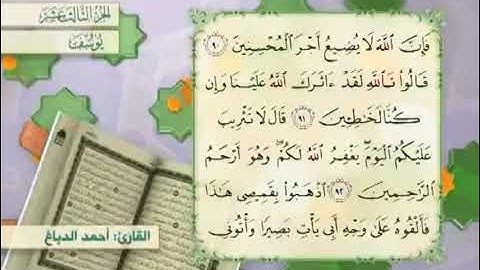 الجزء الثالث عشر
يوسف
فَإِنَّ ٱللَّهَ لَا يُضِيعُ أَجْرَ ٱلْمُحْسِنِينَ ٩٠
قَالُوا۟ تَٱللَّهِ لَقَدْ ءَاثَرَكَ ٱللَّهُ عَلَيْنَا وَإِن
كُنَّا لَخَـٰطِـِٔينَ ٩١ قَالَ لَا تَثْرِيبَ
عَلَيْكُمُ ٱلْيَوْمَ ۖ يَغْفِرُ ٱللَّهُ لَكُمْ ۖ وَهُوَ أَرْحَمُ
ٱلرَّٰحِمِينَ ٩٢ ٱذْهَبُوا۟ بِقَمِيصِى هَـٰذَا
فَأَلْقُوهُ عَلَىٰ وَجْهِ أَبِى يَأْتِ بَصِيرًا وَأْتُونِى
القارئ: أحمد الدباغ